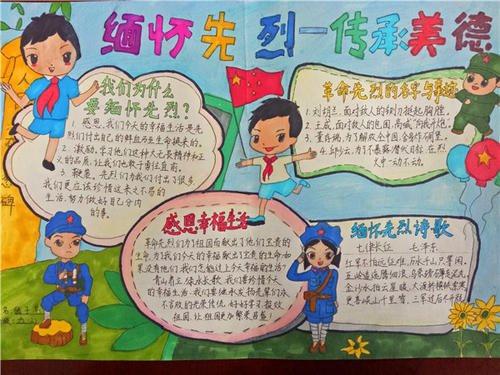 缅怀先烈—传承美德
我们为什么
要缅怀先烈?
1. 感恩。我们今天的幸福生活是先
烈们付出自己的鲜血乃至生命换来的。
2. 激励。学习他们这种大无畏精神和正
义的品质,让我们也敢于奉
3. 鞭策。先烈们为我们付出了很多
我们更应该珍惜这来之不易的
生活,努力做好自己分内
的事。
革命先烈的名字与事迹
1. 刘胡兰,面对敌人的铡刀挺起胸膛。
2. 王成,面对敌人的包围,高喊“向我开炮”
3. 董存瑞,为了解放全中国舍身炸碉堡。
4. 邱少云,为了不暴露潜伏目标,在烈
火中一动不动。
感恩幸福生活
革命先烈们为了祖国而献出了他们宝贵的
生命,为了我们今天的幸福献出了宝贵的生命。如
果没有他们,我们怎能过上今天幸福的生活?
青山青,绿水长歌,我们要珍惜今天
的幸福生活,我们要继承发扬先辈们永
不言败的光荣传统,好好学习,报效
祖国,让祖国更加繁荣昌盛!
缅怀先烈诗歌
七律长征 毛泽东
红军不怕远征难,万水千山只等闲。
五岭逶迤腾细浪,乌蒙磅礴走泥丸。
金沙水拍云崖暖,大渡桥横铁索寒。
更喜岷山千里雪,三军过后尽开颜。
碑